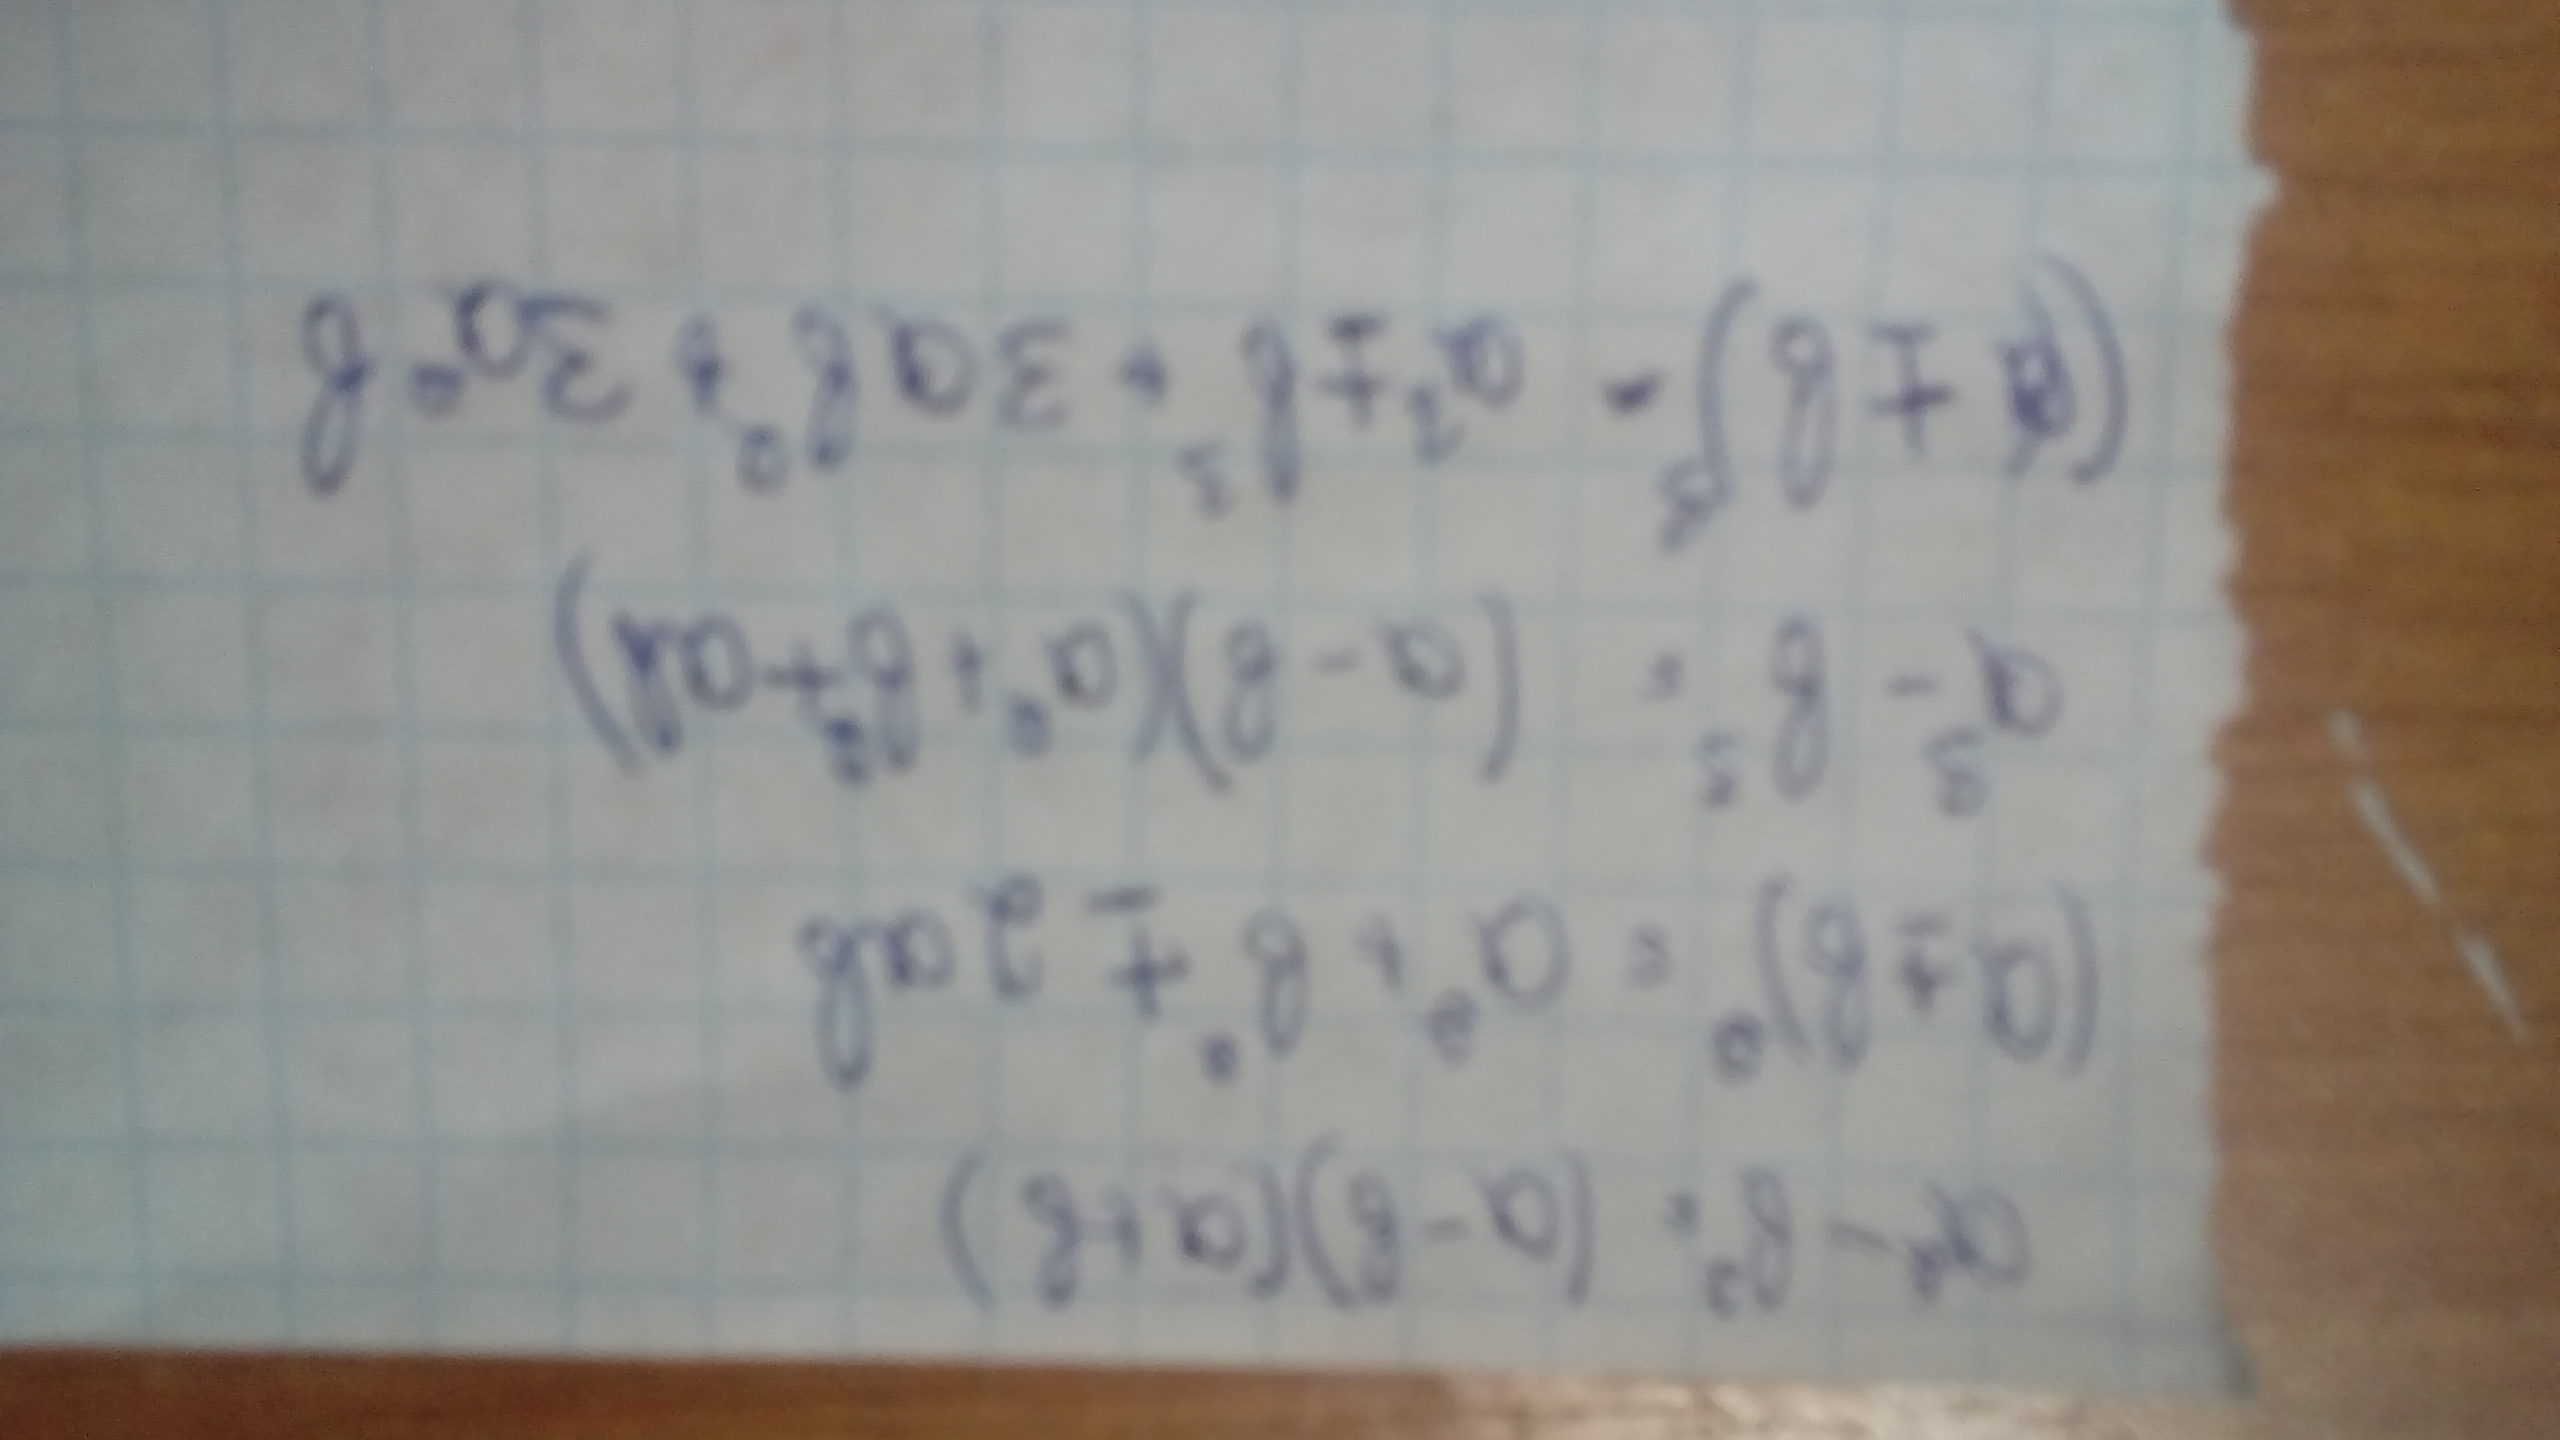 a² - b² = (a - b)(a + b)
(a ± b)² = a² + b² ± 2ab
a³ - b³ = (a - b)(a² + b² + ab)
(a ± b)³ = a³ ± b³ + 3ab² + 3a²b